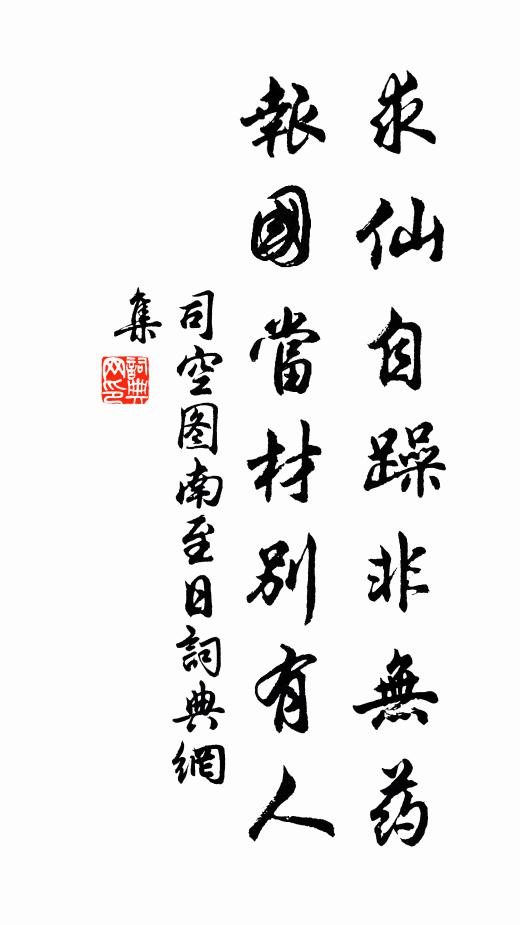 求仙自躁非無药
報國當材别有人
司空图南至日詞典網
集
詞典
网印